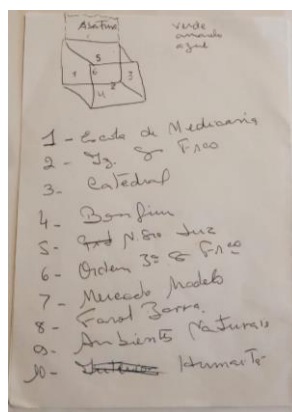 verde
amarelo
azul
5
1 6 3
2
4
1 - Escola de Medicina
2 - Ig. S. Frco
3 - Catedral
4 - Bonfim
5 - N. Sra Luz
6 - Ordem 3ª S Frco
7 - Mercado Modelo
8 - Farol Barra
9 - Ambientes Naturais
10 - Humaitá